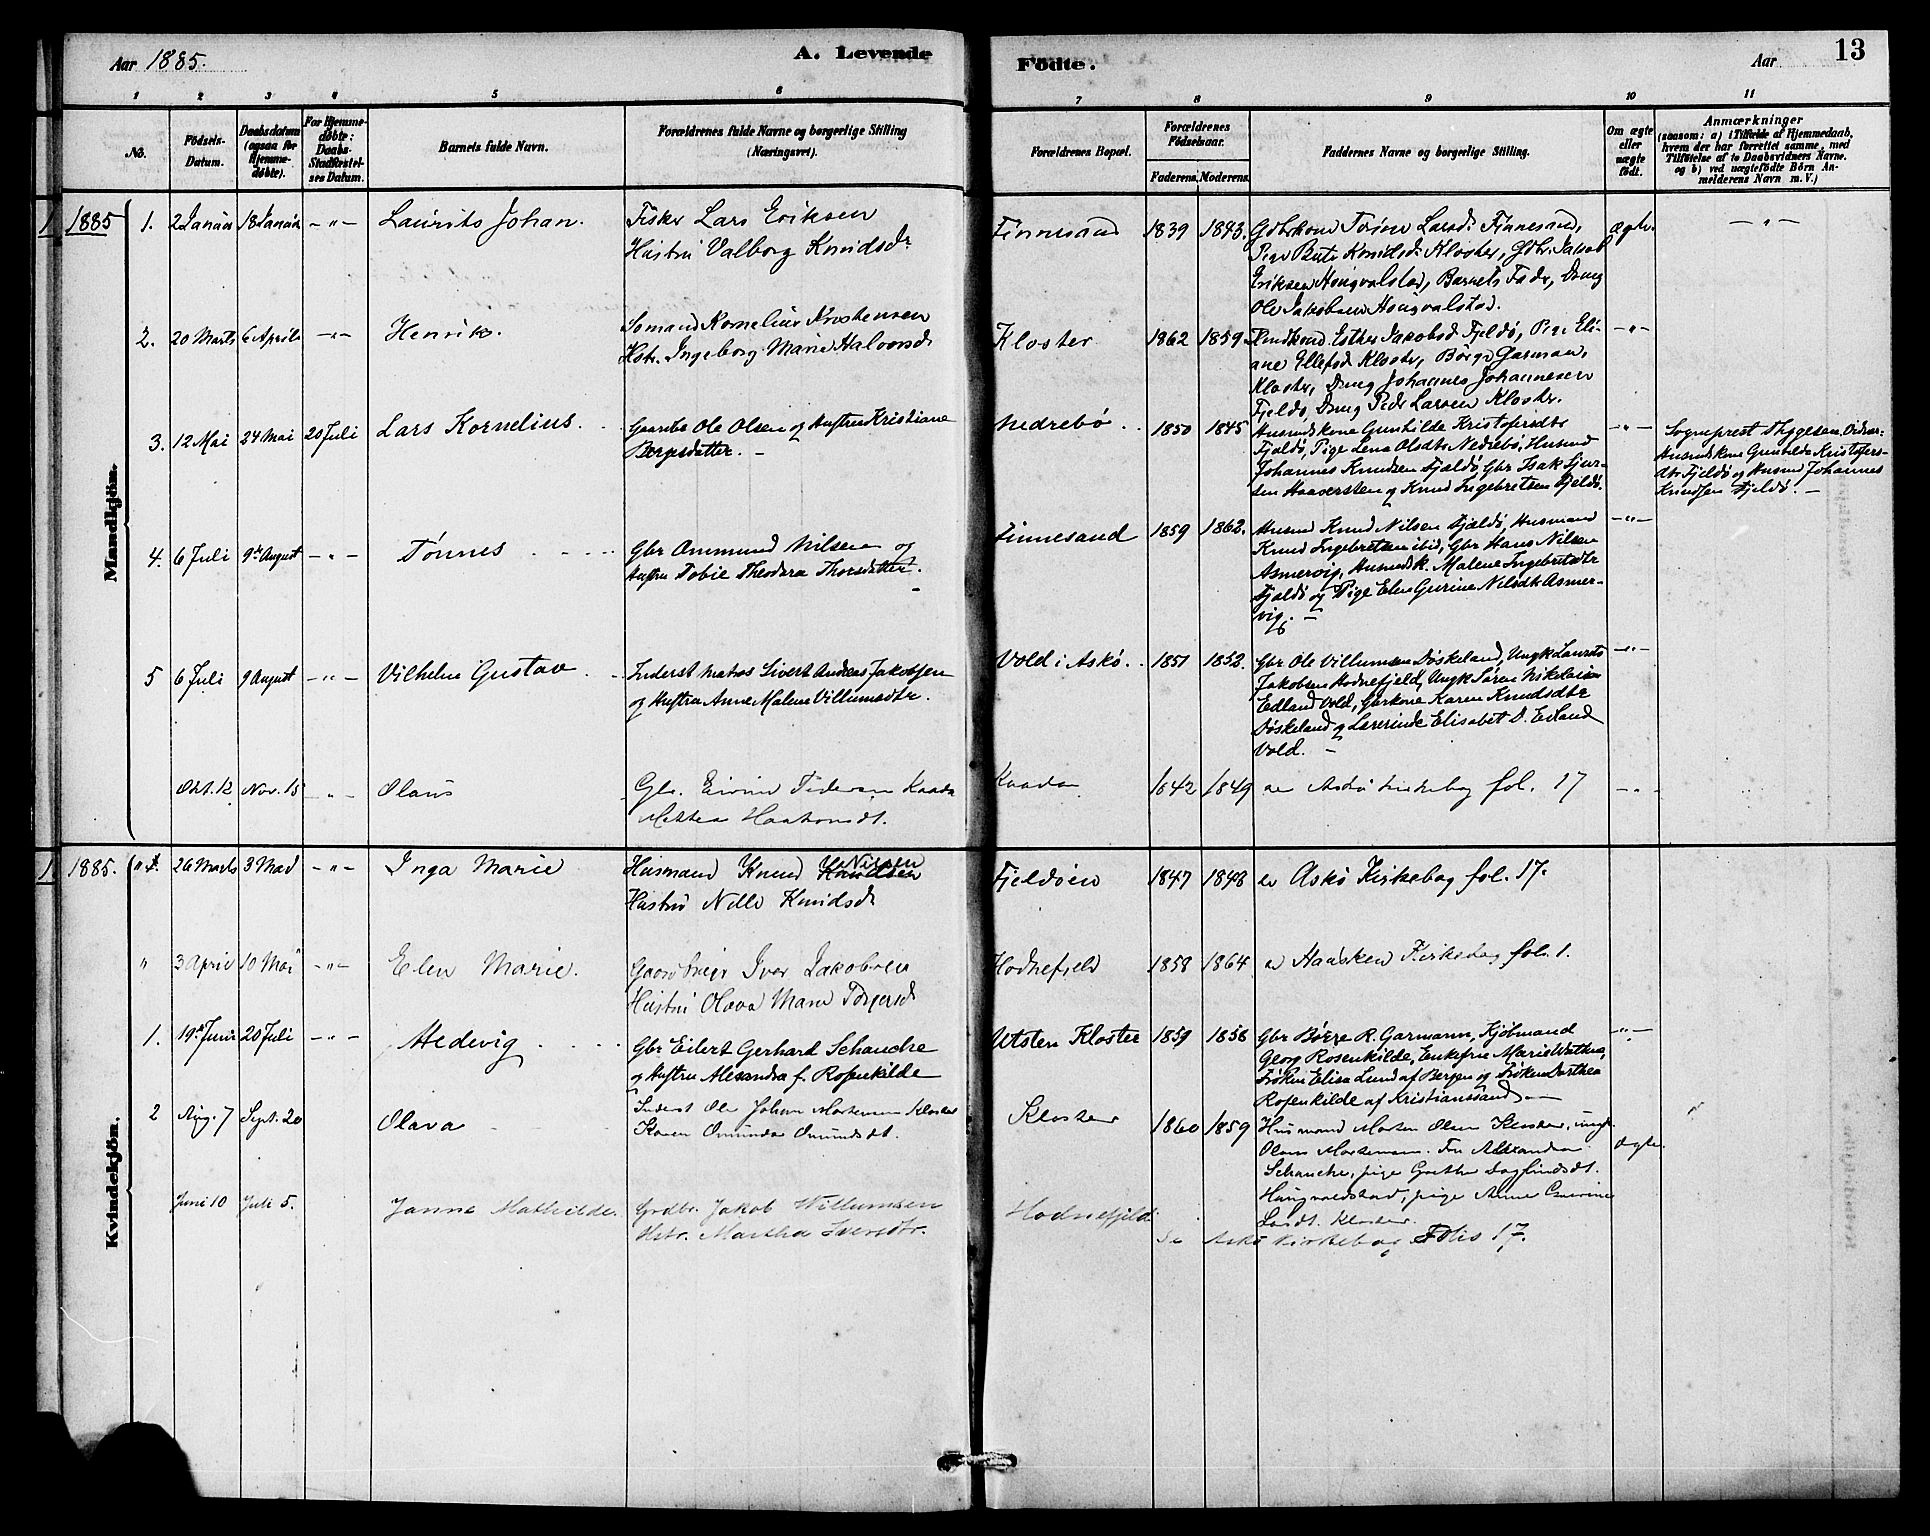 Aar 1885.
A. Levende
Födte.
Aar
13
1 2 3 4 5 6 7 8 9 10 11
No.
Födsels-
Datum.
Daabsdatum
(ogsaa for
Hjemme-
døbte).
For Hjemme-
døbte:
Daabs-
Stadfæstel-
ses Datum.
Barnets fulde Navn.
Forældrenes fulde Navne og borgerlige Stilling
(Næringsvei).
Forældrenes Bopæl.
Forældrenes
Födselsaar.
Faderens. Moderens.
Faddernes Navne og borgerlige Stilling.
Om ægte
eller
uægte
født.
Anmærkninger
(saasom: a) i Tilfælde af Hjemmedaab,
hvem der har forrettet samme, med
Tilföielse af to Daabsvidners Navne.
og b) ved uægtefödte Börn An-
melderens Navn m. V.)
Mandkjön.
1 1885 1. 2 Januar 18 Januar -"- Laurits Johan. Fisker Lars Eriksen
Hustru Valborg Knudsdr
Finnesand 1839 1843. Gbrkone Larsd. Finnesand,
Pige Knudsd. Kloster, Gbr. Jakob
Eriksen Haugvalstad, Barnets Fader, Dreng
Ole Jakobsen Haugvalstad.
Ægte. -"-
2. 20 Marts 6 April -"- Henrik. Sømand Kornelius Kristensen
Hstr. Ingeborg Marie Halvorsd
Kloster 1862 1859. Esther Jakobsd Fjeldö, Pige Eli-
ane Ellefsd Kloster, Börge Garman,
Kloster, Dreng Johannes Johannesen
Fjeldö, Dreng Peder Larsen Kloster.
-"-
3. 12 Mai 24 Mai 20 Juli Lars Kornelius. Gaardbr Ole Olsen og Hustru Kristiane
Børgesdatter. -
Nedrebø 1850 1845 Husmdskone Gunhilde Kristofersdtr
Fjeldö, Pige Lena Olsdtr Nedrebö, Husmd
Johannes Knudsen Fjeldö, Gbr Isak Sjur-
sen Haaversten og Knud Ingebretsen Fjeldö.
-"-
Sogneprest Thygesen. Vidner:
Husmdskone Gunhilda Kristofers-
dtr Fjeldö og Husmd Johannes
Knudsen Fjeldö. -
4. 6 Juli 9de August -"- Tønnes Gbr Ommund Nilsen og
Hustru Tobie Theodora Thorsdatter. -
Finnesand 1859 1862. Husmd Knud Nilsen Fjældö, Husmand
Knud Ingebretsen ibid, Gbr Hans Nilsen
Asmervig, Husmdsk. Malene Ingebretsdtr
Fjældö og Pige Elen Gurine Nilsdtr Asmer-
vig. -
-"-
5 6 Juli 9 August -"- Vilhelm Gustav Inderst Matros Sivert Andreas Jakobsen
og Hustru Anne Malene Villumsdtr.
Vold i Askö. 1851 1852. Gbr Ole Villumsen Døskeland, Ungk Laurits
Jakobsen Hodnefjeld, Ungk Sören Nikolaisen
Edland Vold, Gbrkone Karen Knudsdtr
Døskeland og Lærerinde Elisabet D. Edland
Vold. -
-"-
Okt. 12 Nov. 15 -"- Olaus Gbr. Pedersen Kaada
Mette Haakonsdt.
Kaada 1842 1849 se Askö kirkebog fol. 17 -"-
Kvindekjön.
1 1885. 26 Marts 3 Mai -"- Inga Marie Husmand Knud Knudsen Nilsen
Hustru Nille Knudsdr
Fjeldöen 1847 1848 se Askö Kirkebog fol. 17.
" 3 April 10 Mai -"- Elen Marie. Gaardbruger Iver Jakobsen
Hustru Olava Marie
Hodnefjeld 1858 1864 se Kirkebog fol. 1.
1. 19de Juni 20 Juli -"- Hedevig Gbr Eilert Gerhard Schanche
og Hustru Alexandra f. Rosenkilde
Utsten Kloster 1859 1858 Gbr Börre R. Garmann, Kjöbmand
Georg Rosenkilde, Enkefrue Marie
Fröken Elisa Lund af Bergen og Fröken Dorthea
Rosenkilde af Kristianssand -
-"-
2 Aug. 7 Sept. 20 Olava Inderst Ole Johan Mortensen Kloster
Karen Omundsdt.
Kloster 1860 1859 Husmand Morten Olsen Kloster, ungk.
Olaus Mortensen. Fru Alexandra
Schanche, pige Grethe
Haugvaldstad, pige Anne
Larsdt. Kloster.
ægte.
Juni 10 Juli 5. Janna Mathilde. Grdbr. Jakob Willumsen
Hstr. Martha Iversdtr.
Hodnefjeld Se Askö kirkebog Folio 17.